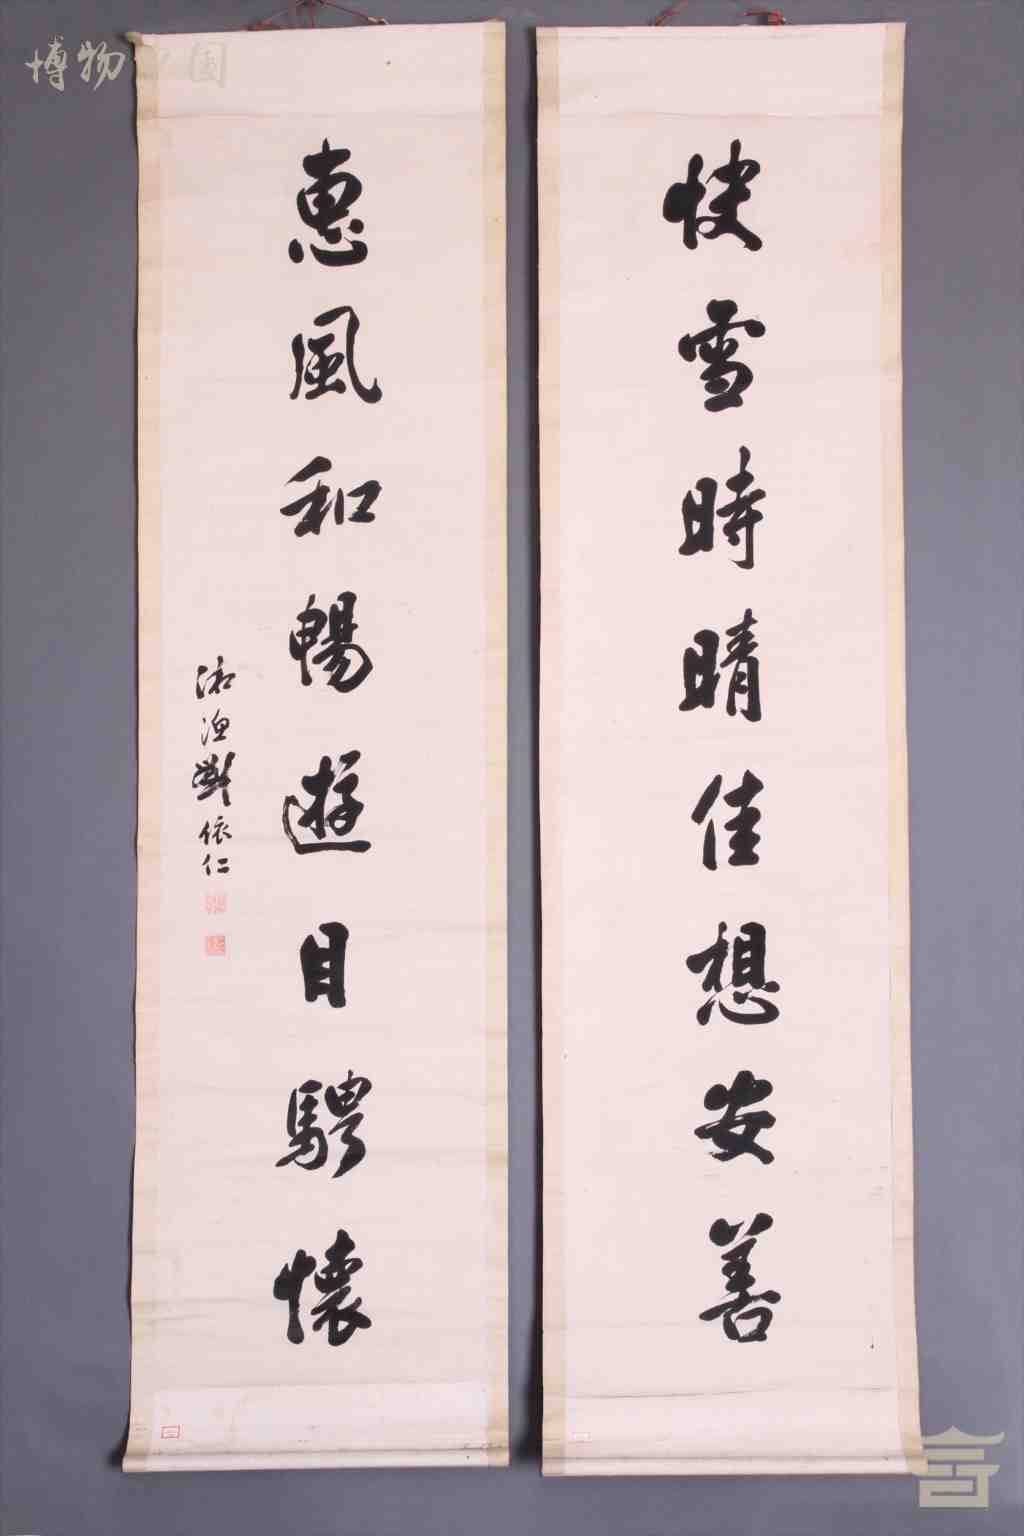 快雪時晴佳想安善
惠風和暢遊目騁懷
湘渔劉依仁
博物中國